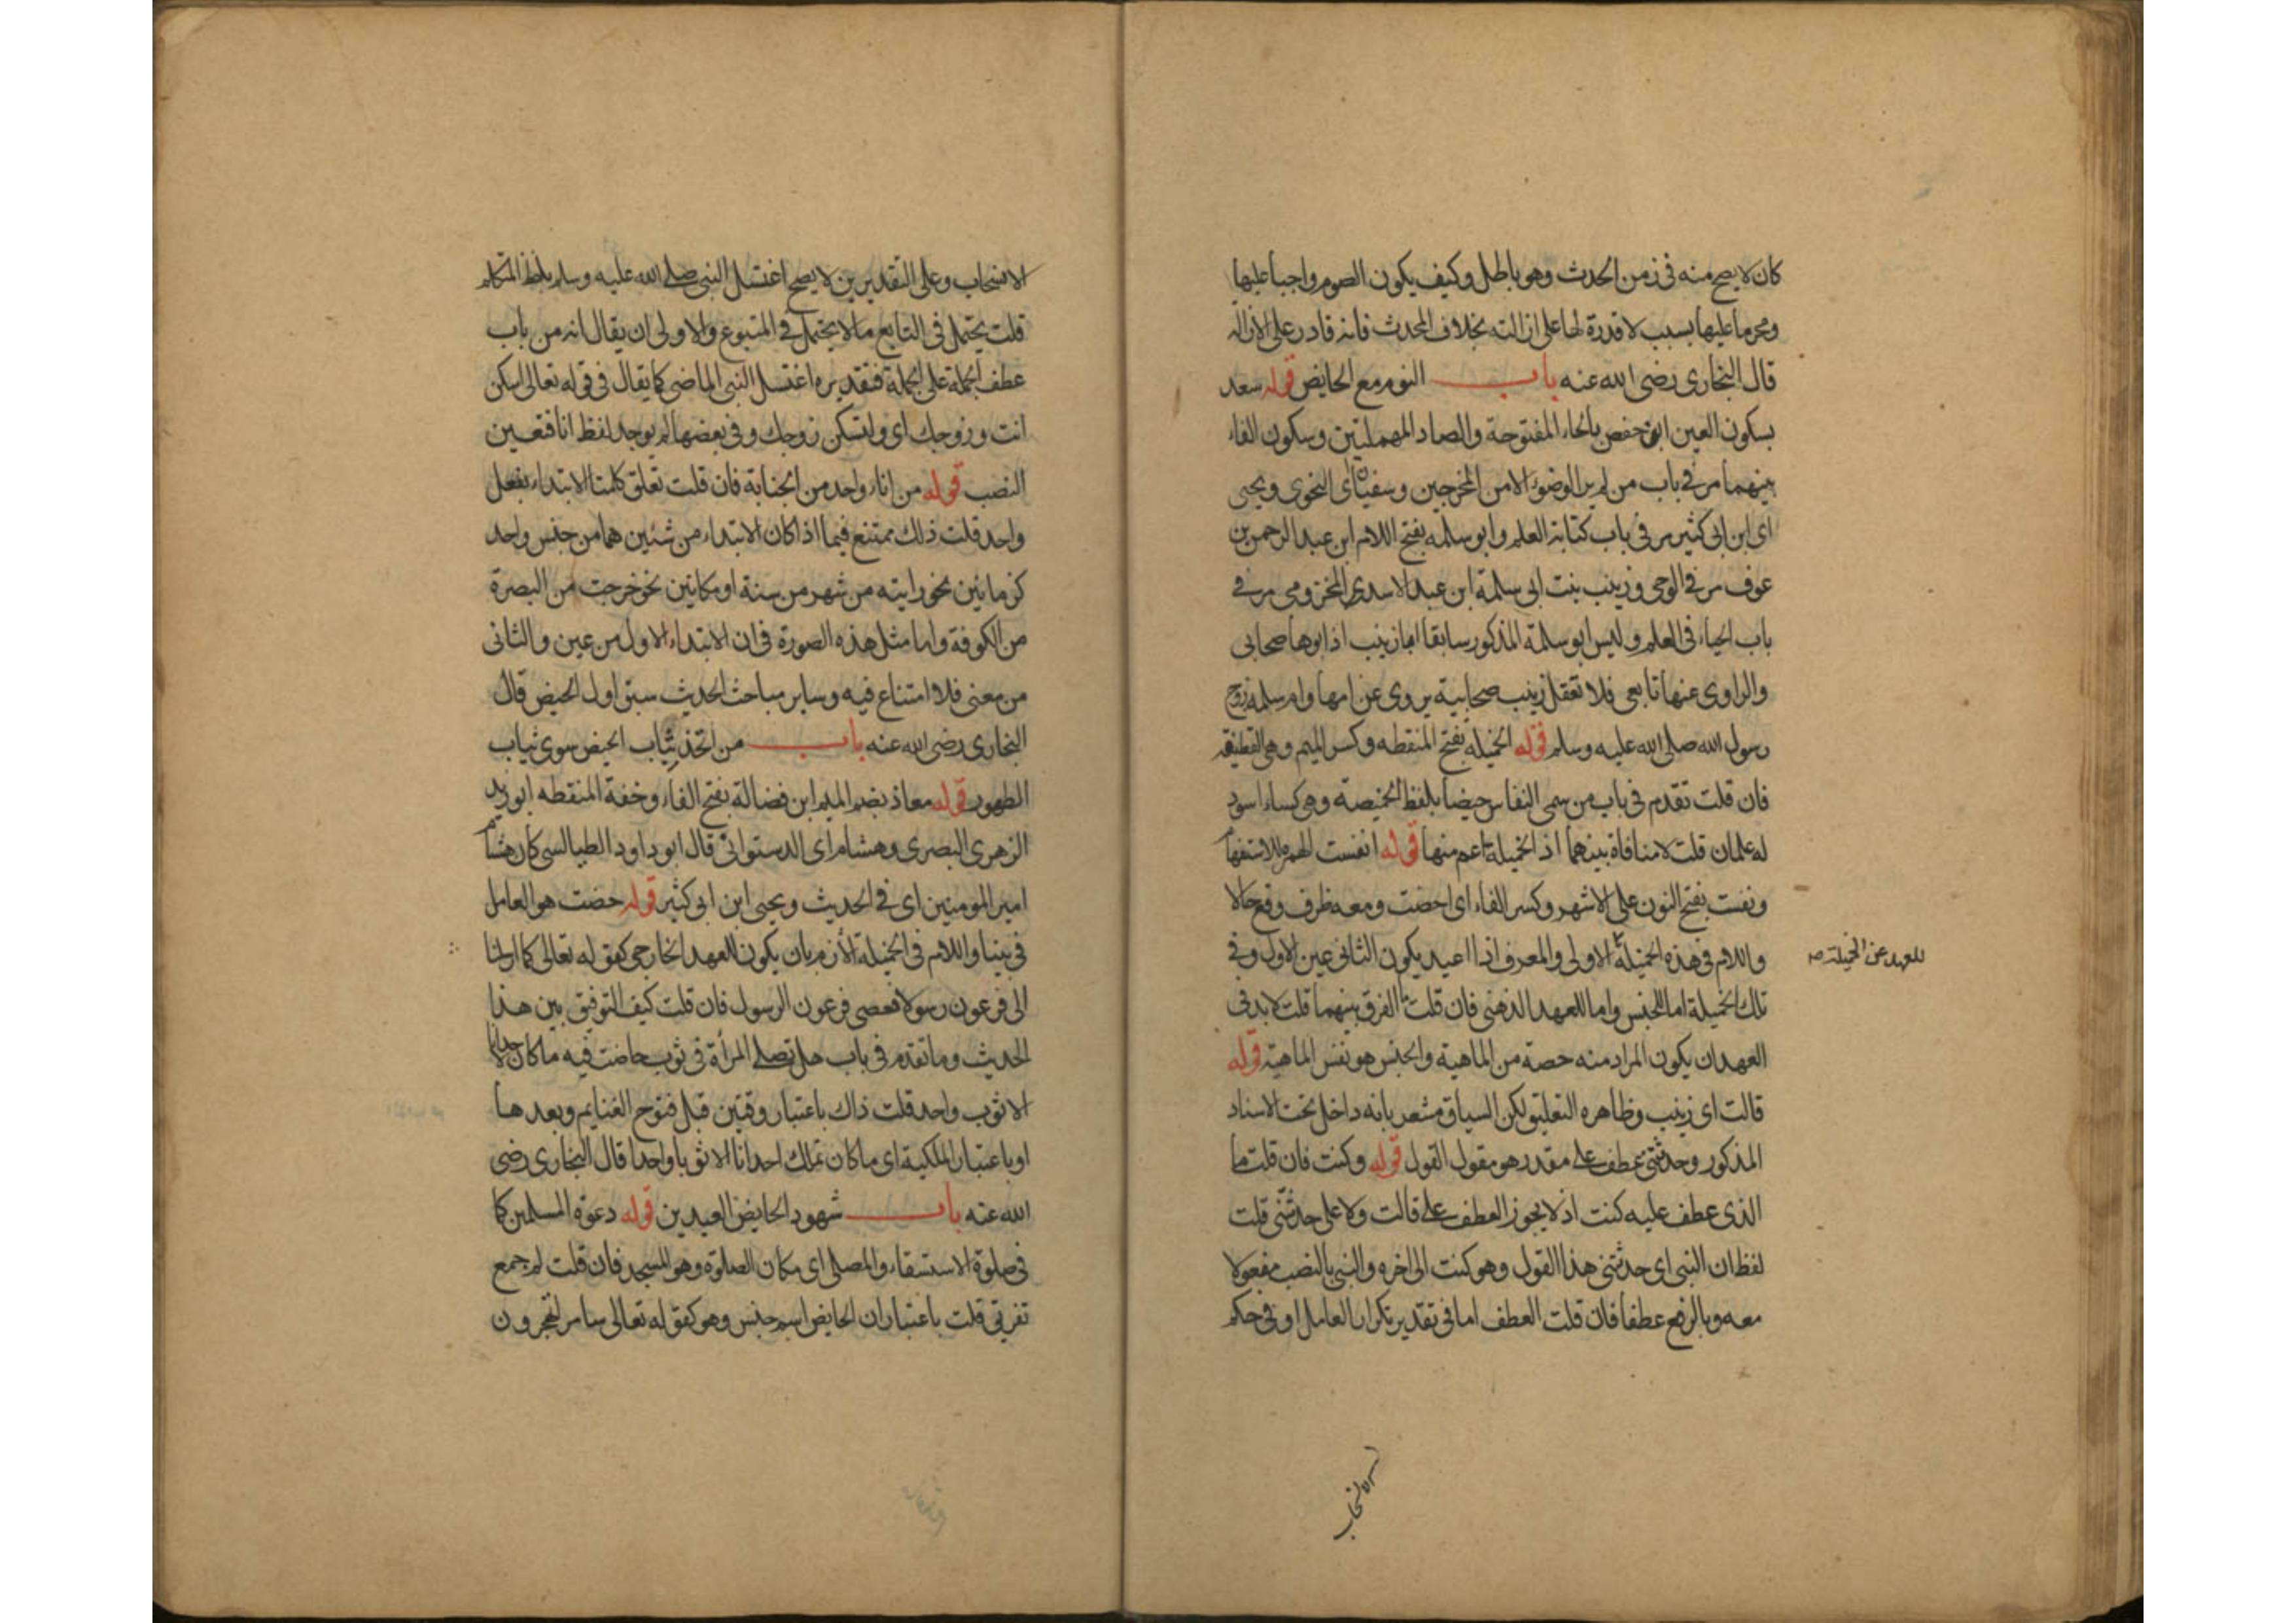 كان لا يصح منه في زمن الحدث وهو باطل وكيف يكون الصوم واجبا عليها
ومحرما عليها بسبب لا قدرة لها على ازالته بخلاف المحدث فانه قادر على الازالة
قال البخارى رضى الله عنه باب النوم مع الحايض قوله سعد
بسكون العين ابن حفص بالحاء المفتوحة والصاد المهملتين وسكون الفاء
بينهما مر فى باب من لم ير الوضوء الا من المخرجين وسفيان اى النحوى ويحيى
اى ابن ابى كثير مر فى باب كتابة العلم وابو سلمه بفتح اللام ابن عبد الرحمن بن
عوف مر فى الوحى وزينب بنت ابى سلمة ابن عبد الاسد المخزومى مر فى
باب الحياء فى العلم وليس ابو سلمة المذكور سابقا ابا زينب اذ ابوها صحابى
والراوى عنها تابعى فلا تغفل زينب صحابية يروى عن امها وام سلمة زوج
رسول الله صلى الله عليه وسلم قوله الخميلة بفتح المنقطه وكسر الميم وهى القطيفة
فان قلت تقدم فى باب من سمى النفاس حيضا بلفظ الخميصة وهى كساء اسود
له علمان قلت لا منافاة بينهما اذ الخميلة اعم منها قوله انفست الهمزة للاستفهام
ونفست بفتح النون على الاشهر وكسر الفاء اى احضت ومعه ظرف وقع حالا
واللام فى هذه الخميلة الاولى والمعرف اذا اعيد يكون الثانى عين الاول وفى
للعهد عن الخميلة صح
تلك الخميلة اما للجنس واما للعهد الذهنى فان قلت ما الفرق بينهما قلت لا بد فى
العهد ان يكون المراد منه حصة من الماهية والجنس هو نفس الماهية قوله
قالت اى زينب وظاهره التعليق لكن السياق مشعر بانه داخل تحت الاسناد
المذكور وحدثتنى عطف على مقدر هو مقول القول قوله وكنت فان قلت ما
الذى عطف عليه كنت اذ لا يجوز العطف على قالت ولا على حدثتنى قلت
لفظ ان النبى اى حدثتنى هذا القول وهو كنت الى اخره والنبى بالنصب مفعولا
معه وبالرفع عطفا فان قلت العطف اما فى تقدير تكرار العامل او فى حكم
الانسحاب
الانسحاب وعلى التقديرين لا يصح اغتسل النبى صلى الله عليه وسلم بلفظ المتكلم
قلت يحتمل فى التابع ما لا يحتمل فى المتبوع والاولى ان يقال انه من باب
عطف الجملة على الجملة فتقديره اغتسل النبى الماضى كما يقال فى قوله تعالى اسكن
انت وزوجك اى ولتسكن زوجك وفى بعضها لم يوجد لفظ انا فتعين
النصب قوله من اناء واحد من الجنابة فان قلت تعلق كلمتا الابتداء بفعل
واحد قلت ذلك ممتنع فيما اذا كان الابتداء من شئين هما من جنس واحد
كزمانين نحو رايته من شهر من سنة او مكانين نحو خرجت من البصرة
من الكوفة واما مثل هذه الصورة فان الابتداء الاول من عين والثانى
من معنى فلا امتناع فيه وساير مباحث الحديث سبق اول الحيض قال
البخارى رضى الله عنه باب من اتخذ ثياب الحيض سوى ثياب
الطهور قوله معاذ بضم الميم ابن فضالة بفتح الفاء وخفة المنقطه ابو زيد
الزهرى البصرى وهشام اى الدستوائى قال ابو داود الطيالسى كان هشام
امير المومنين اى فى الحديث ويحيى ابن ابى كثير قوله حضت هو العامل
فى بينا واللام فى الخميلة الازم بان يكون للعهد الخارجى كقوله تعالى كما ارسلنا
الى فرعون رسولا فعصى فرعون الرسول فان قلت كيف التوفيق بين هذا
الحديث وما تقدم فى باب هل تصلى المرأة فى ثوب حاضت فيه ما كان لاحدانا
الا ثوب واحد قلت ذاك باعتبار وقتين قبل فتوح الغنايم وبعدها
او باعتبار الملكية اى ما كان تملك احدانا الا ثوبا واحدا قال البخارى رضى
الله عنه باب شهود الحايض العيدين قوله دعوة المسلمين كما
فى صلوة الاستسقاء والمصلى اى مكان الصلوة وهو المسجد فان قلت لم جمع
تفريقى قلت باعتبار ان الحايض اسم جنس وهو كقوله تعالى سامرا تهجرون